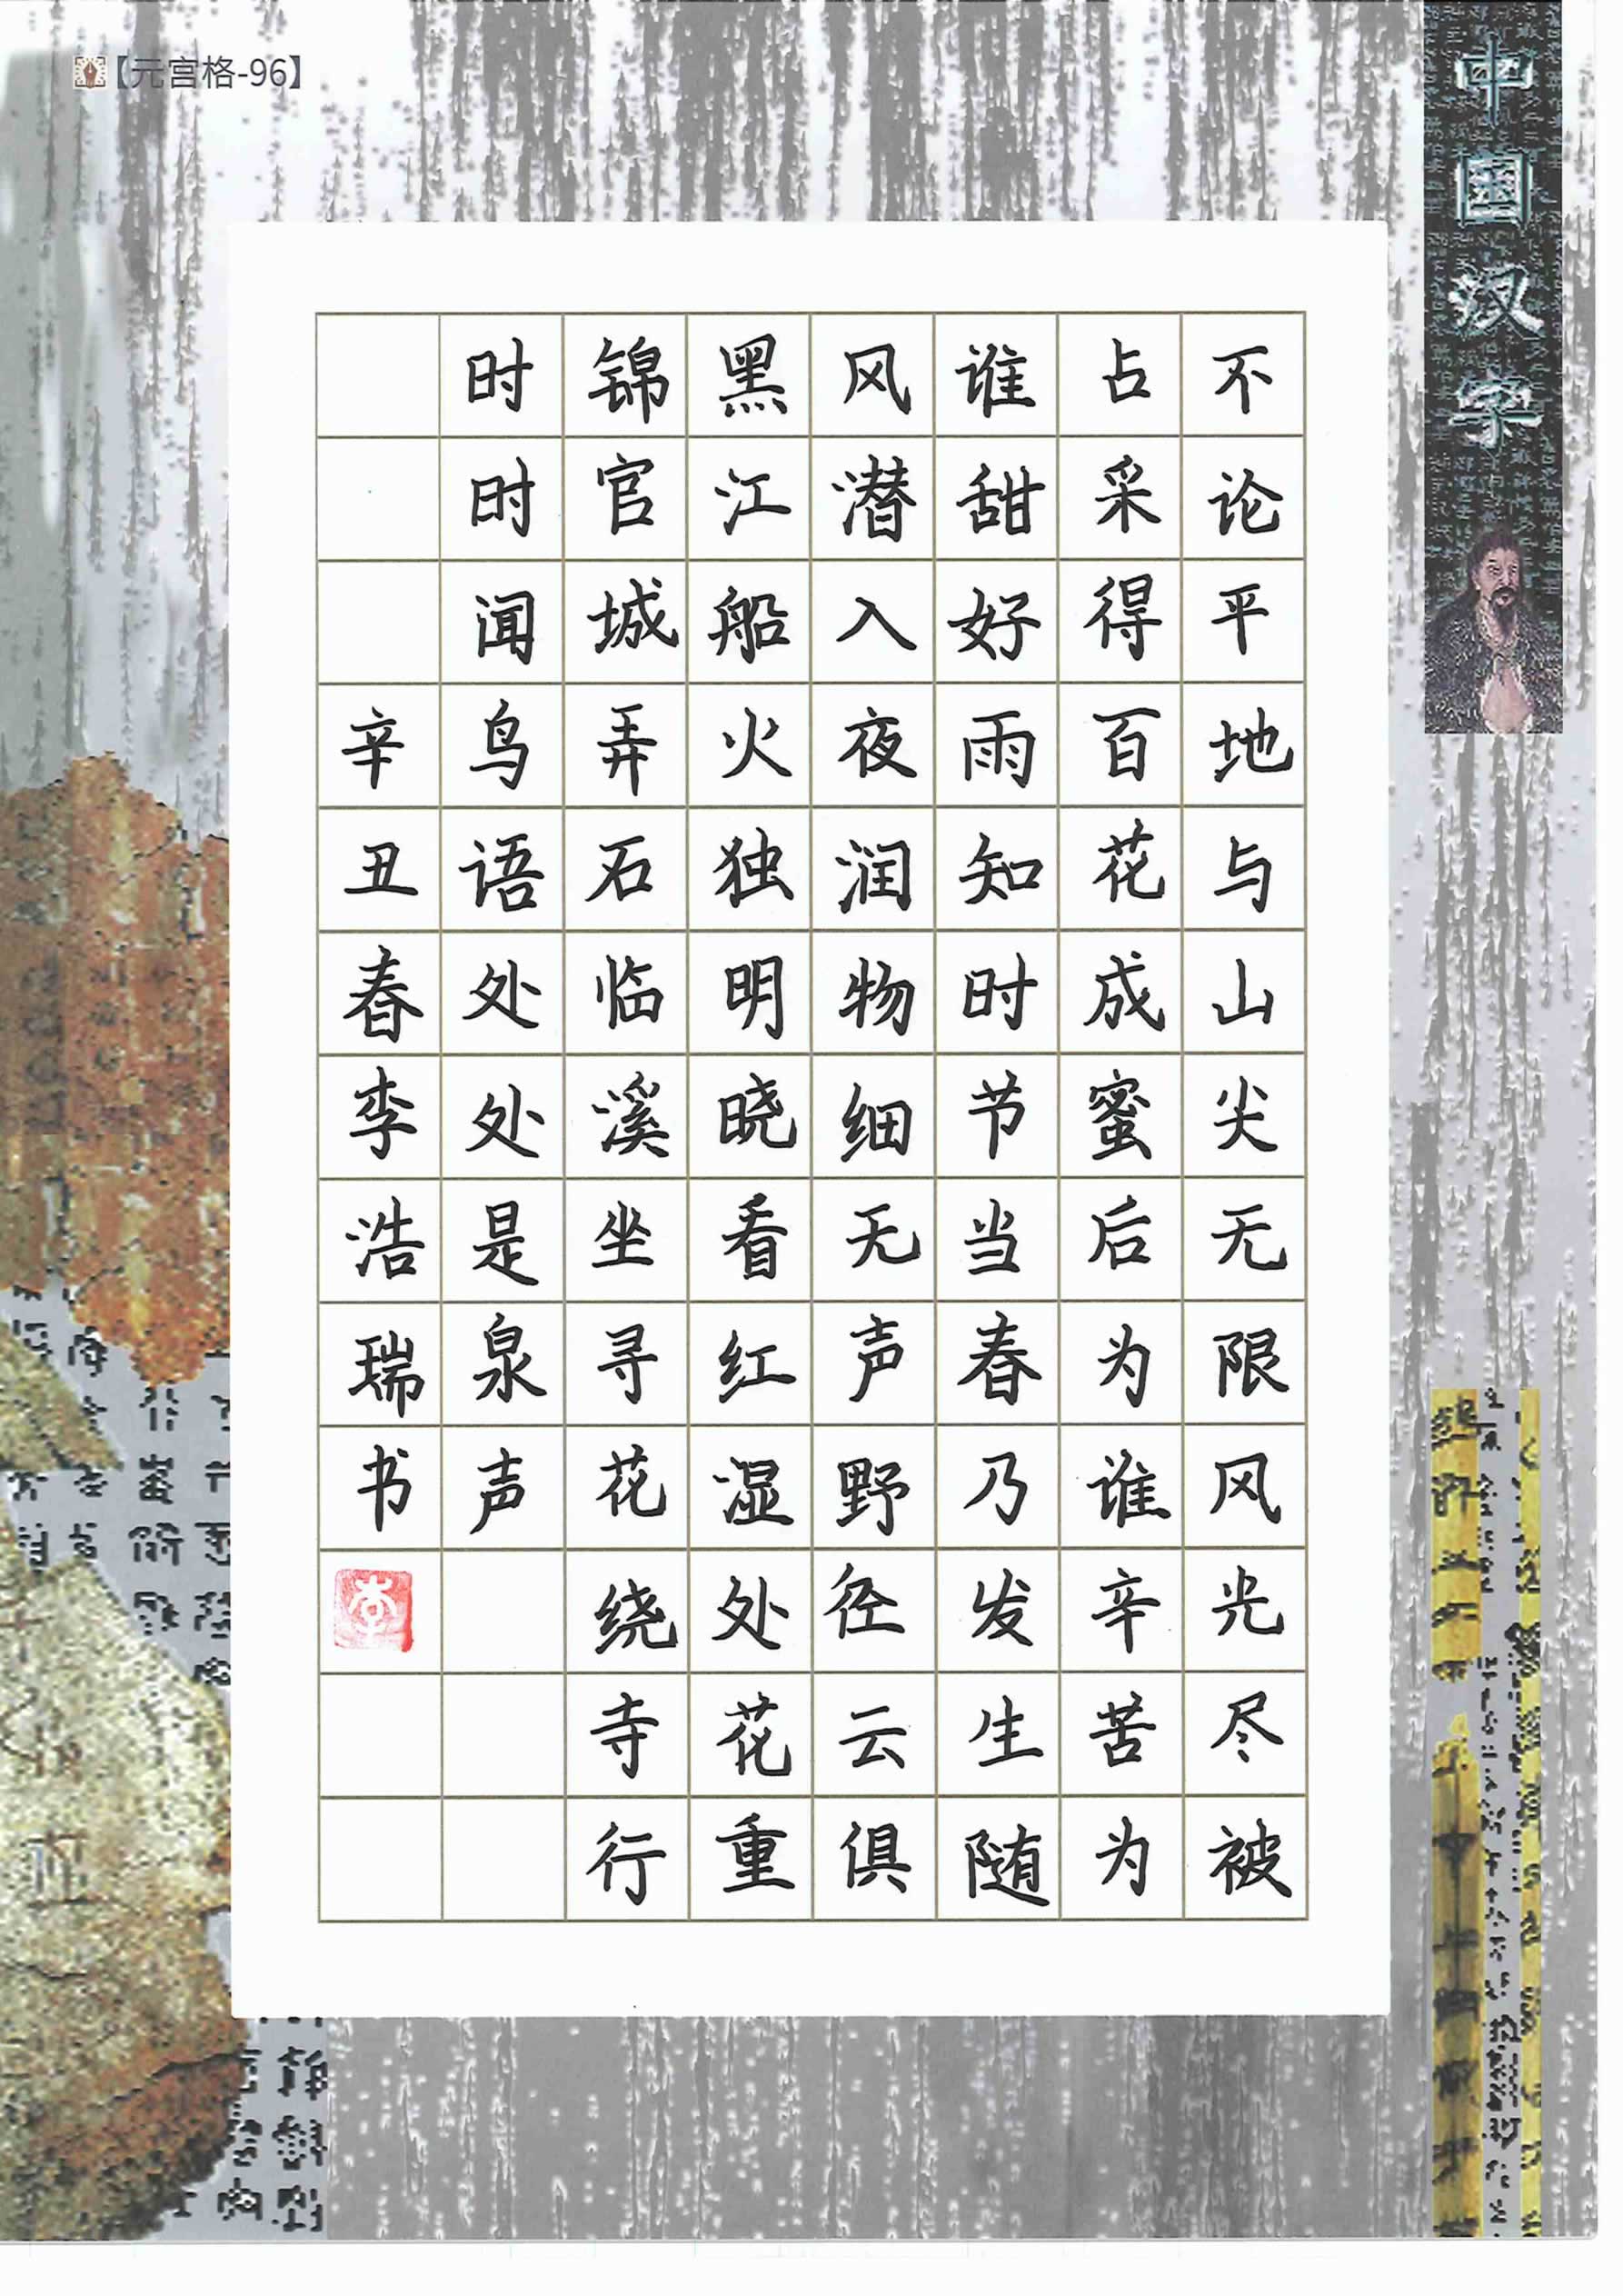 【元宫格-96】
中国汉字
不论平地与山尖无限风光尽被
占采得百花成蜜后为谁辛苦为
谁甜好雨知时节当春乃发生随
风潜入夜润物细无声野径云俱
黑江船火独明晓看红湿处花重
锦官城弄石临溪坐寻花绕寺行
时时闻鸟语处处是泉声
辛丑春李浩瑞书
李